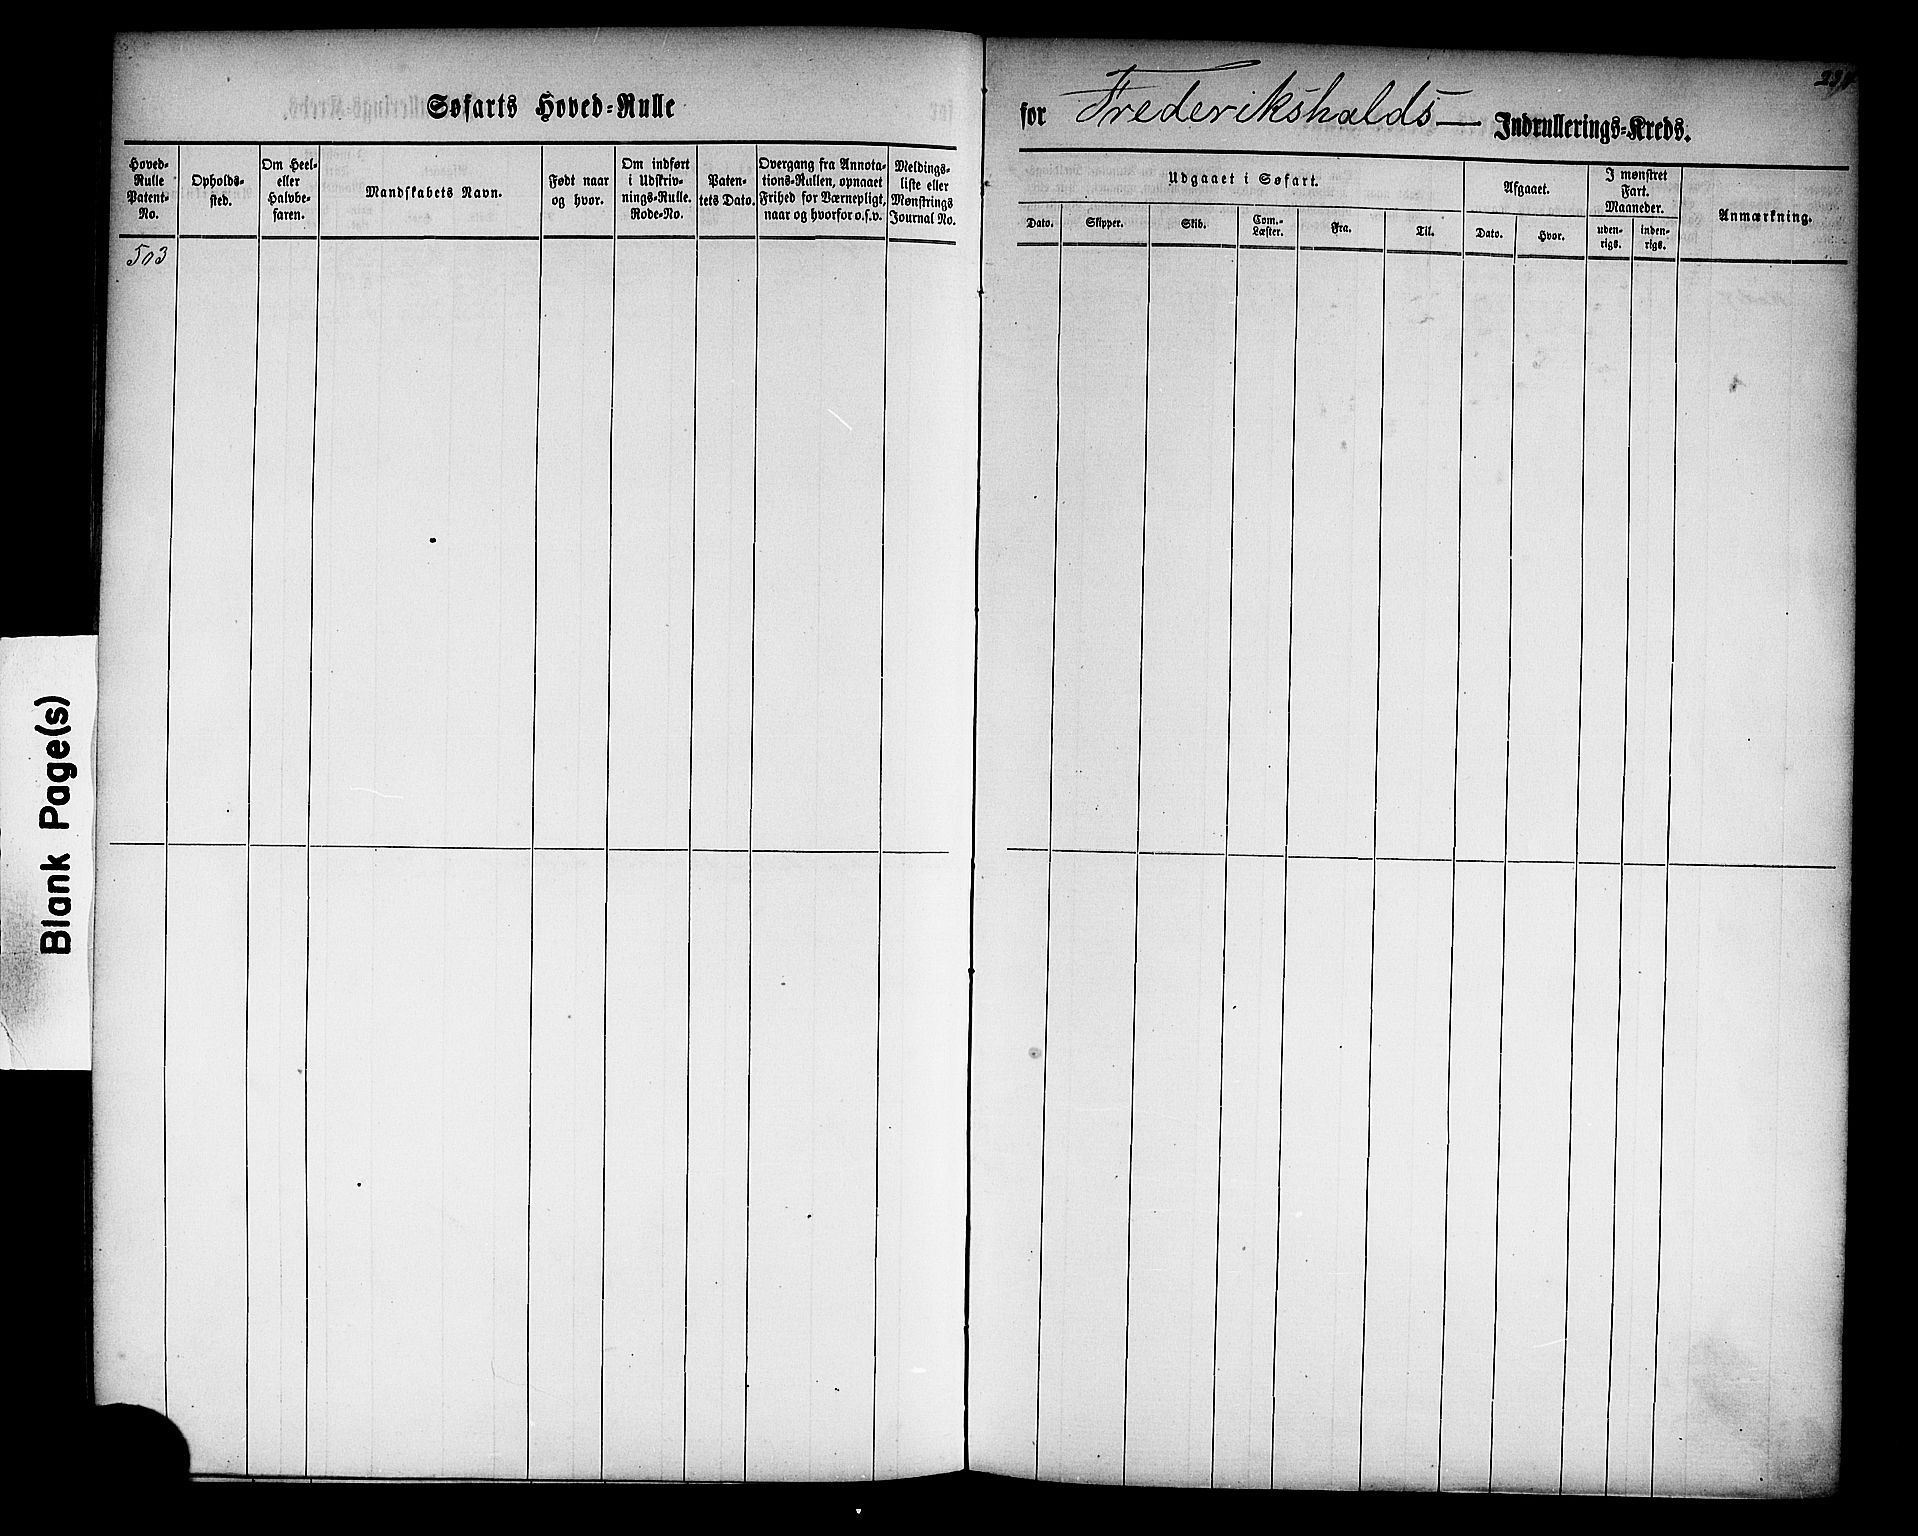 Søfarts Hoved-Rulle
for Frederikshalds— Indrullerings-Kreds.
Hoved-
Rulle
Patent-
No.
Opholds-
sted.
Om Heel-
eller
Halvbe-
faren.
Mandskabets Navn.
Født naar
og hvor.
Om indført
i Udskriv-
nings-Rulle.
Rode-No.
Paten-
tets Dato.
Overgang fra Annota-
tions-Rullen, opnaaet
Frihed for Værnepligt,
naar og hvorfor o.s.v.
Meldings-
liste eller
Mønstrings
Journal No.
Udgaaet i Søfart.
Dato.
Skipper.
Skib.
Com.-
Læster.
Fra.
Til.
Afgaaet.
Dato.
Hvor.
I mønstret
Fart.
Maaneder.
uden-
rigs.
inden-
rigs.
Anmærkning.
503
Blank Page(s)